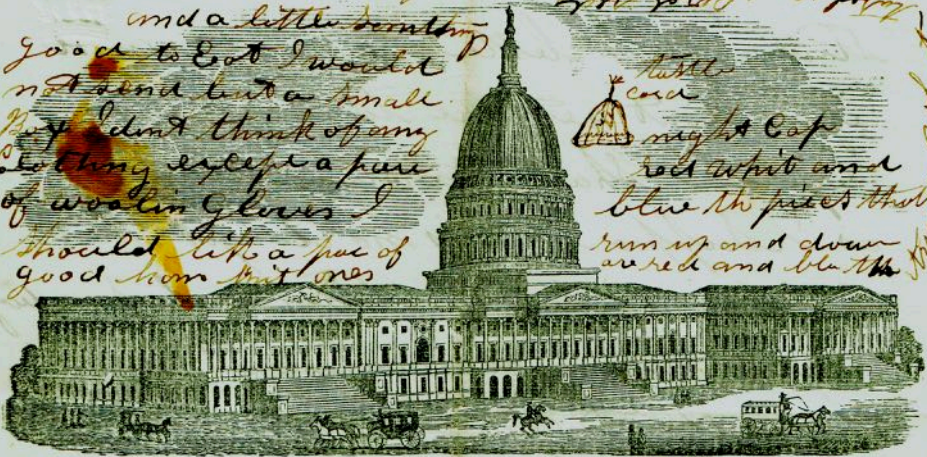 and a little somthing
good to Eat I would
not send but a small
Box I dont think of any
Clothing except a pare
of woolin Gloves I
should like a pare of
good hom nit ones
tastle
cord
night Cap
red whit and
blue th pieces that
run up and down
are red and blu the